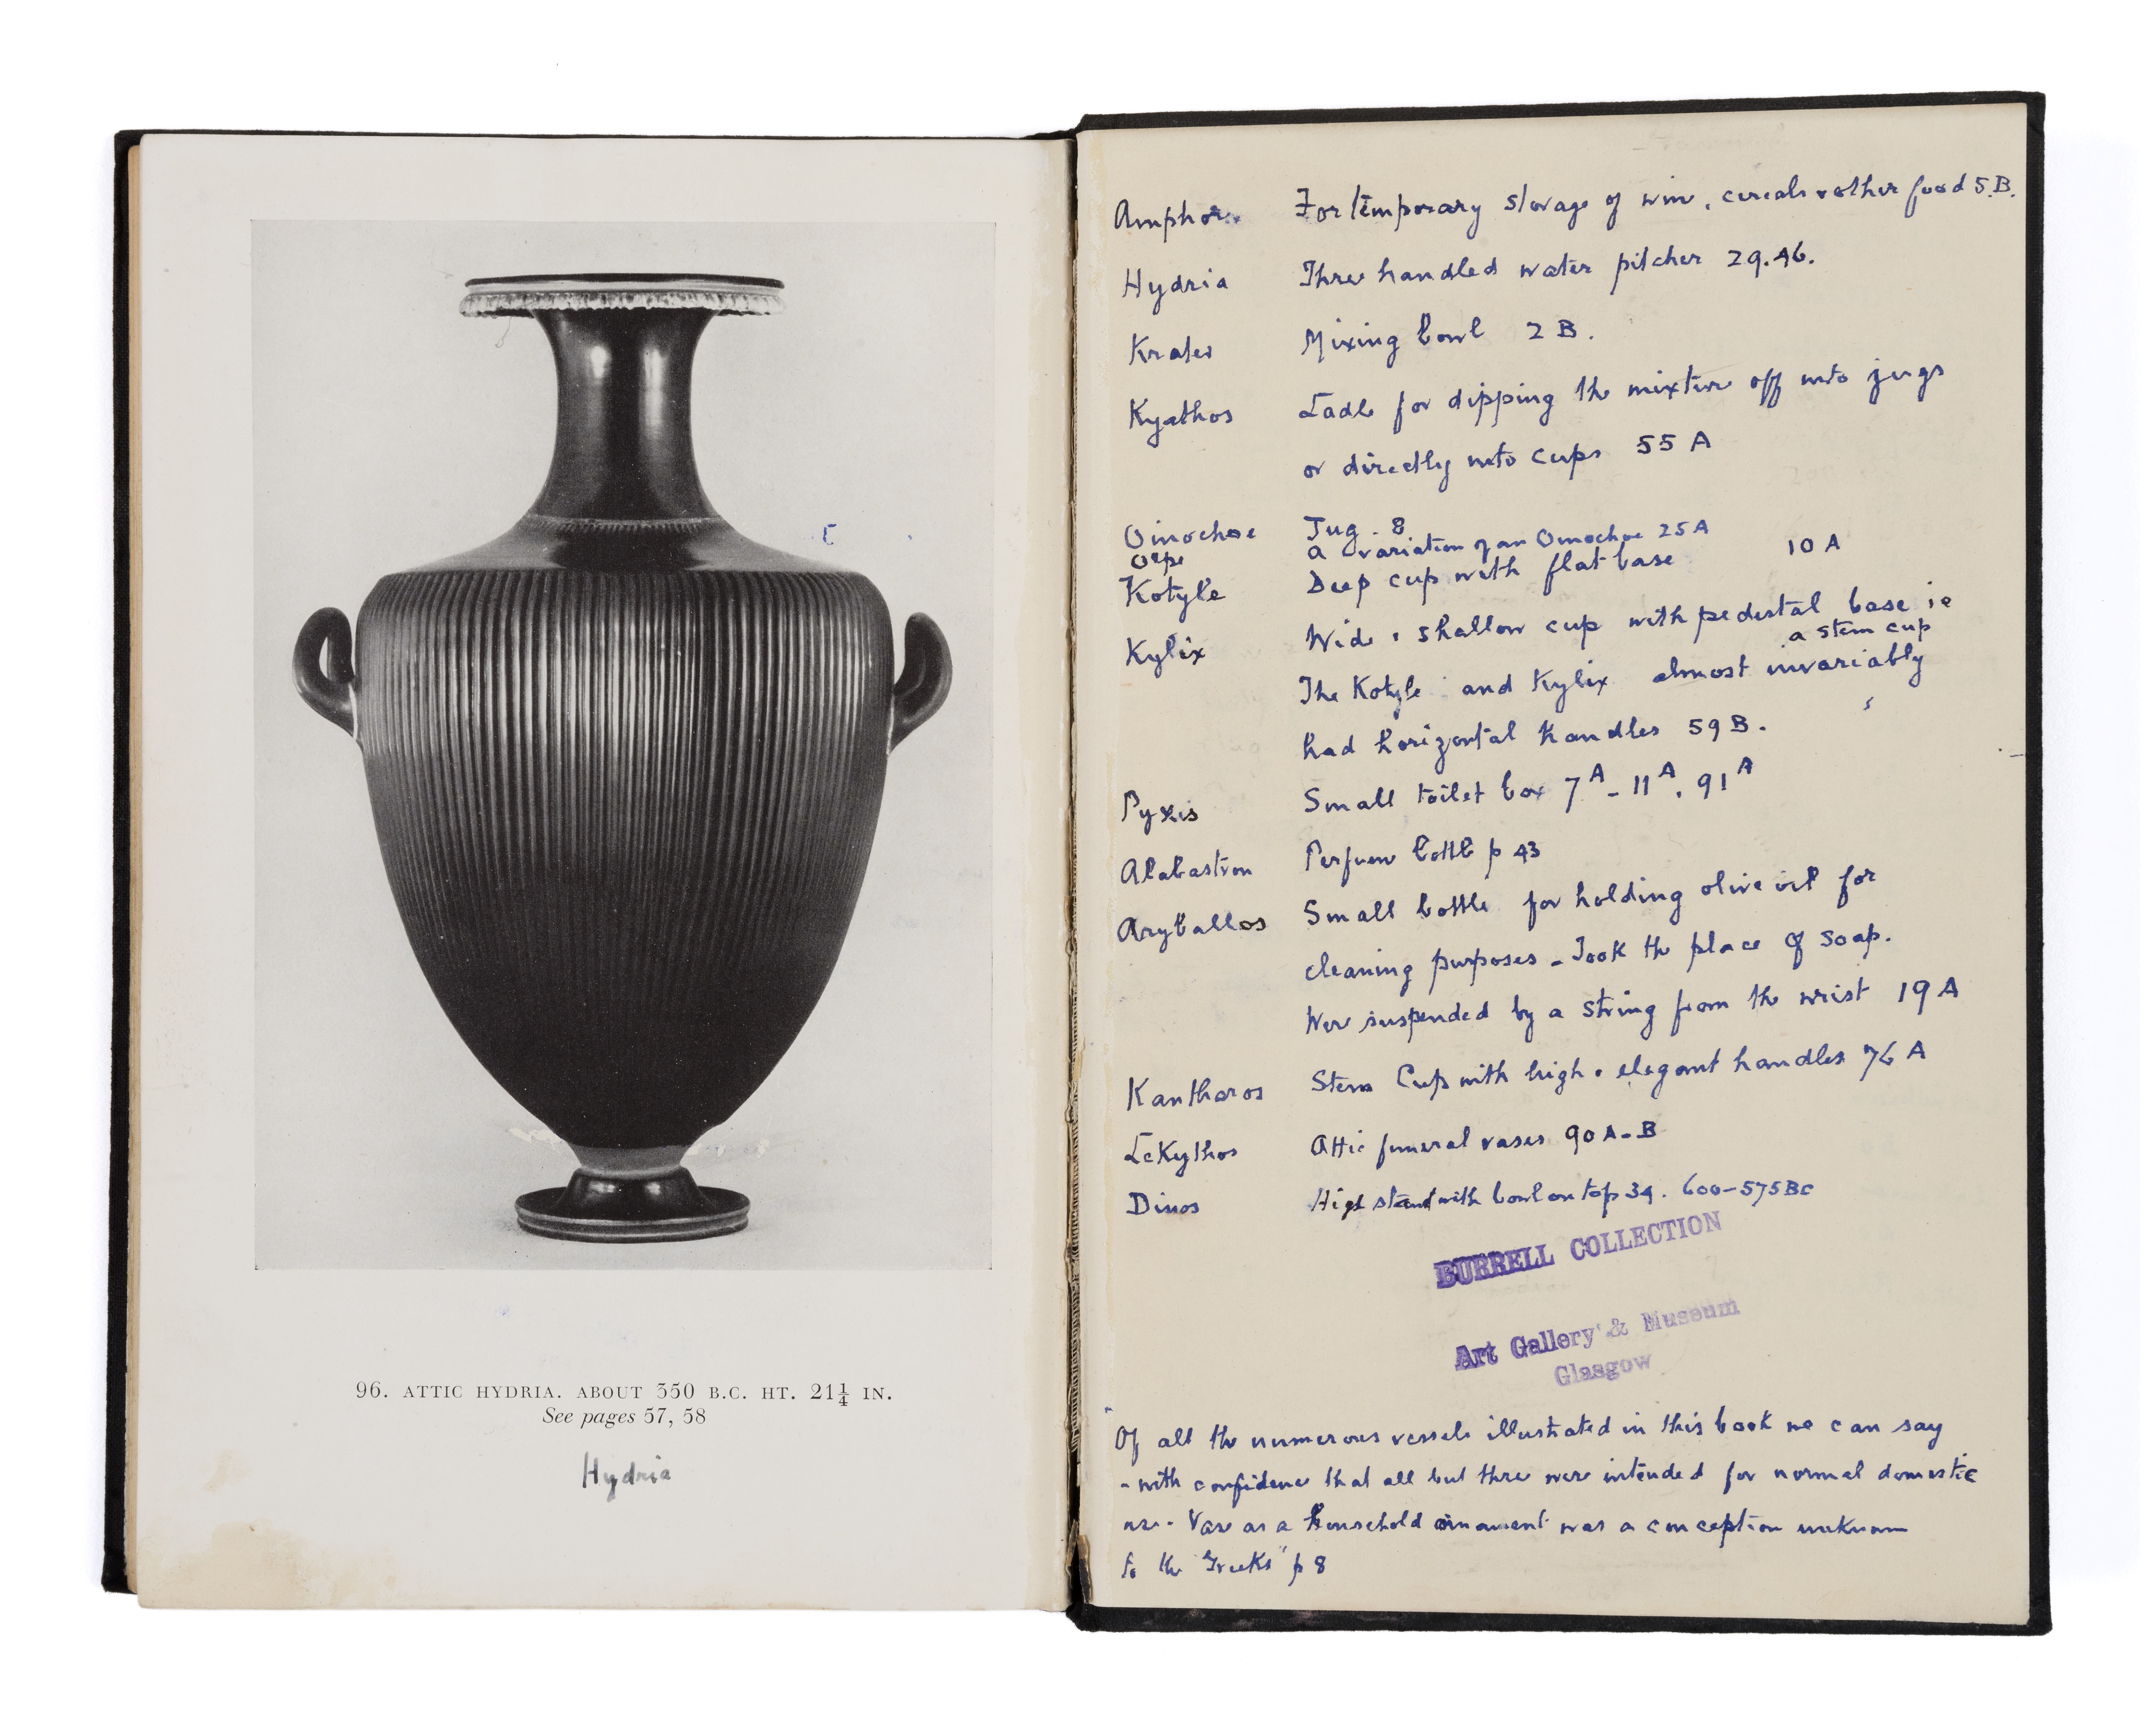 96. ATTIC HYDRIA. ABOUT 350 B.C. HT. 21¼ IN.
See pages 57, 58
Hydria
Amphora For temporary storage of wine, cereals & other food 5.B.
Hydria Three handled water pitcher 29.46.
Krater Mixing bowl 2 B.
Kyathos Ladle for dipping the mixture off into jugs
or directly into cups 55 A
Oinochoe Jug. 8
Olpe a variation of an Oinochoe 25 A
Kotyle Deep cup with flat base 10 A
Kylix Wide & shallow cup with pedestal base ie
a stem cup
The Kotyle and Kylix almost invariably
had horizontal handles 59 B.
Pyxis Small toilet box 7A - 11A. 91A
Alabastron Perfume bottle p 43
Aryballos Small bottle for holding olive oil for
cleaning purposes - Took the place of soap.
Were suspended by a string from the wrist 19 A
Kantharos Stem Cup with high & elegant handles 76 A
Lekythos Attic funeral vases 90 A-B
Dinos High stand with bowl on top 34. 600-575 BC
BURRELL COLLECTION
Art Gallery & Museum
Glasgow
"Of all the numerous vessels illustrated in this book we can say
- with confidence that all but three were intended for normal domestic
use. Vase as a household ornament was a conception unknown
to the Greeks" p 8